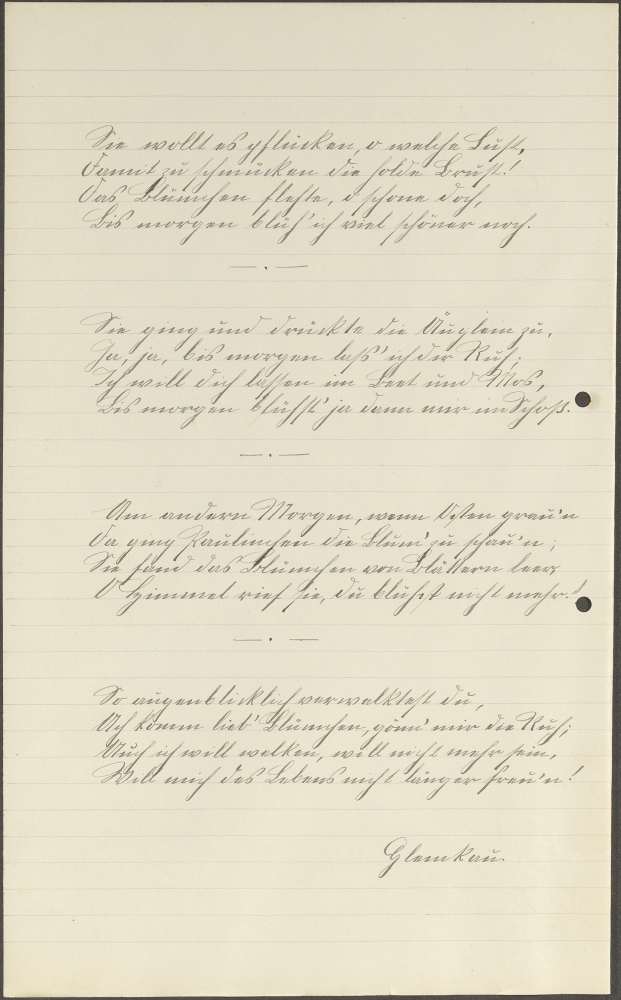 Sie wollt es pflücken, o welche Lust,
Damit zu schmücken die holde Brust!
Das Blümchen flehte, o schone doch,
Bis morgen blüh' ich viel schöner noch.
Sie ging und drückte die Äuglein zu,
Ja, ja, bis morgen lass' ich der Ruh;
Ich will dich lassen im Beet und Mos,
Bis morgen blühst' ja dann mir im Schoß.
Am andern Morgen, wenn Osten grau'n
Da ging Paulinchen die Blum' zu schau'n;
Sie fand das Blümchen von Blättern leer,
O Himmel rief sie, du blühst nicht mehr!
So augenblicklich verwelktest du,
Ach komm lieb' Blümchen, gönn' mir die Ruh;
Auch ich will welken, will nicht mehr sein,
Will mich des Lebens nicht länger freu'n!
Glemkau.